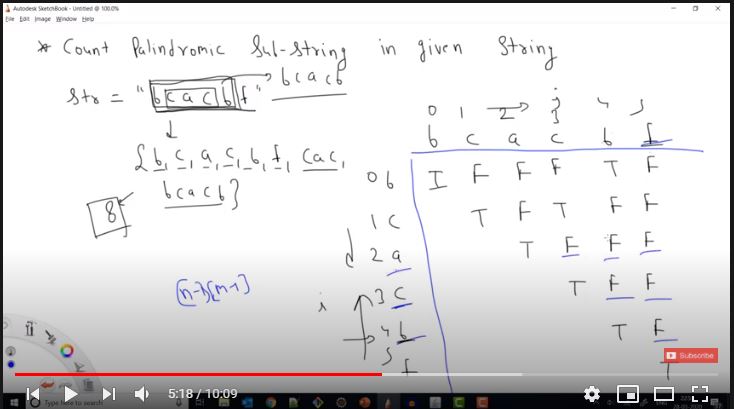 Autodesk SketchBook - Untitled @ 100.0%
File Edit Image Window Help
* Count Palindromic Sub-String in given String
Str = "bcacbf" bcacb
{b, c, a, c, b, f, cac,
bcacb}
8
[n-1][n-1]
j
0 1 2 3 4 5
b c a c b f
0 b I F F F T F
1 c T F T F F
2 a T F F F
i 3 c T F F
4 b T F
5 f T
Subscribe
5:18 / 10:09
Type here to search